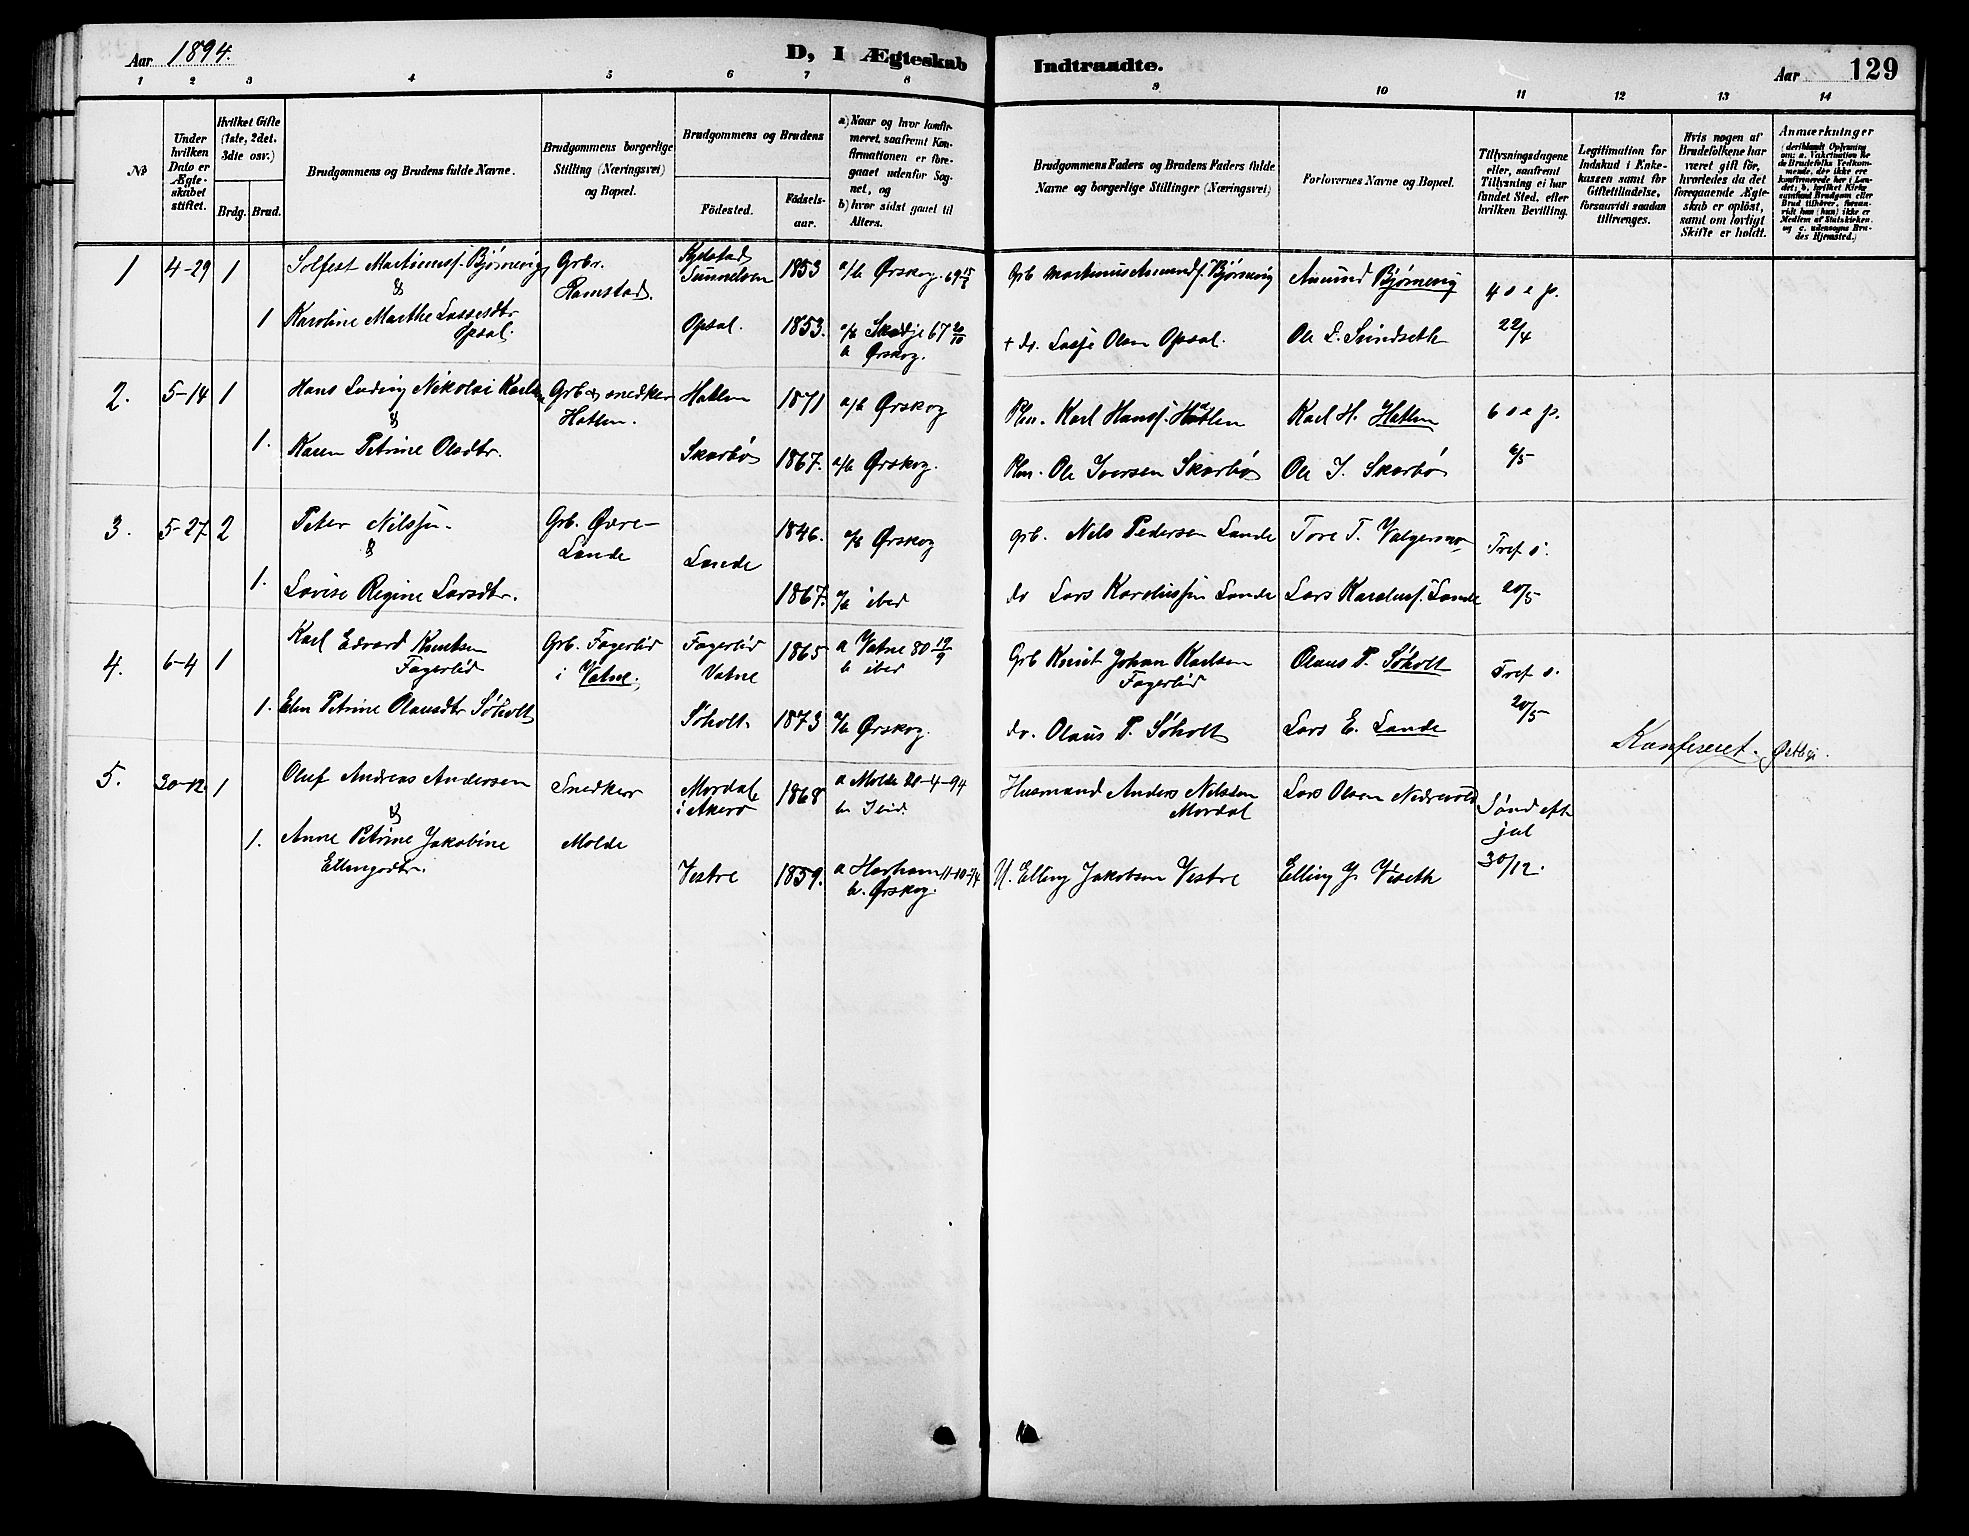 Aar 1894.
D, I Ægteskab
Indtraadte.
Aar
129
1 2 3 4 5 6 7 8 9 10 11 12 13 14
No
Under hvilken Dato er Ægteskabet stiftet.
Hvilket Gifte (1ste, 2det. 3die osv.)
Brdg. Brud.
Brudgommens og Brudens fulde Navne.
Brudgommens borgerlige Stilling (Næringsvei) og Bopæl.
Brudgommens og Brudens
Födested.
Födselsaar.
a) Naar og hvor konfirmeret, saafremt Konfirmationen er foregaaet udenfor Sognet, og
b) hvor sidst gaaet til Alters.
Brudgommens Faders og Brudens Faders fulde Navne og borgerlige Stillinger (Næringsvei)
Forlovernes Navne og Bopæl.
Tillysningsdagene eller, saafremt Tillysning ei har fundet Sted, efter hvilken Bevilling.
Legitimation for Indskud i Enkekassen samt for Giftetilladelse, forsaavidt saadan tiltrænges.
Hvis nogen af Brudefolkene har været gift för, hvorledes da det foregaaende Ægteskab er oplöst, samt om lovligt Skifte er holdt.
Anmærkninger
1 4-29 1 Solfest Martinussf. Bjørnevig Grbr. Ramstad. Sunnelven 1853 a/b Ørskog. 69 Grb Martinus Amundsf. Bjørnevig Amund Bjørnevig 4 s e p.
&
1 Karoline Marthe Lassesdtr Opsal. Opsal. 1853. a/b Skodje 67 20/10 b Ørskog. + do. Lasse Olsen Opsal. Ole L. Svindseth 22/4
2. 5-14 1 Hans Ludvig Nikolai Karlsen Grb & snedker Hatlen. Hatlen 1871 a/b Ørskog Karl Hanssf. Hatlen Karl H. Hatlen 6 s e p.
&
1. Karen Petrine Olsdtr. Skarbø 1867. a/b Ørskog. Ole Iversen Skarbø Ole I. Skarbø 6/5
3. 5-27 2 Peter Nilssen. Grb. Øvre-Lande Lande 1846. a/b Ørskog grb. Nils Pedersen Lande Tore T. Valgermo Tref s.
&
1. Lovise Regine Larsdtr. 1867. a/b ibid do Lars Karolussen Lande Lars Karolusf. Lande 20/5
4. 6-4 1 Karl Edvard Knutsen Fagerlid Grb. Fagerlid i Vatne. Fagerlid Vatne 1865 a Vatne 80 19/9 b ibid Grb Knut Johan Karlsen Fagerlid Olaus P. Søholt Tref s.
1. Elen Petrine Olausdtr Søholt Søholt. 1873 a/b Ørskog. do. Olaus P. Søholt Lars E. Lande 20/5
Konfereret.
5. 30-12 1 Oluf Andreas Andersen Snedker Mordal i Akerø 1868 a Molde 20-4-94 b ibid. Husmand Anders Nilssen Mordal Lars Olsen Nedrevold Sønd eft jul
&
1. Anne Petrine Jakobine Ellingsdtr. Molde Vestre 1859. a Harham 11-10-74 b. Ørskog. U. Elling Jakobsen Vestre Elling J. Viseth 30/12.